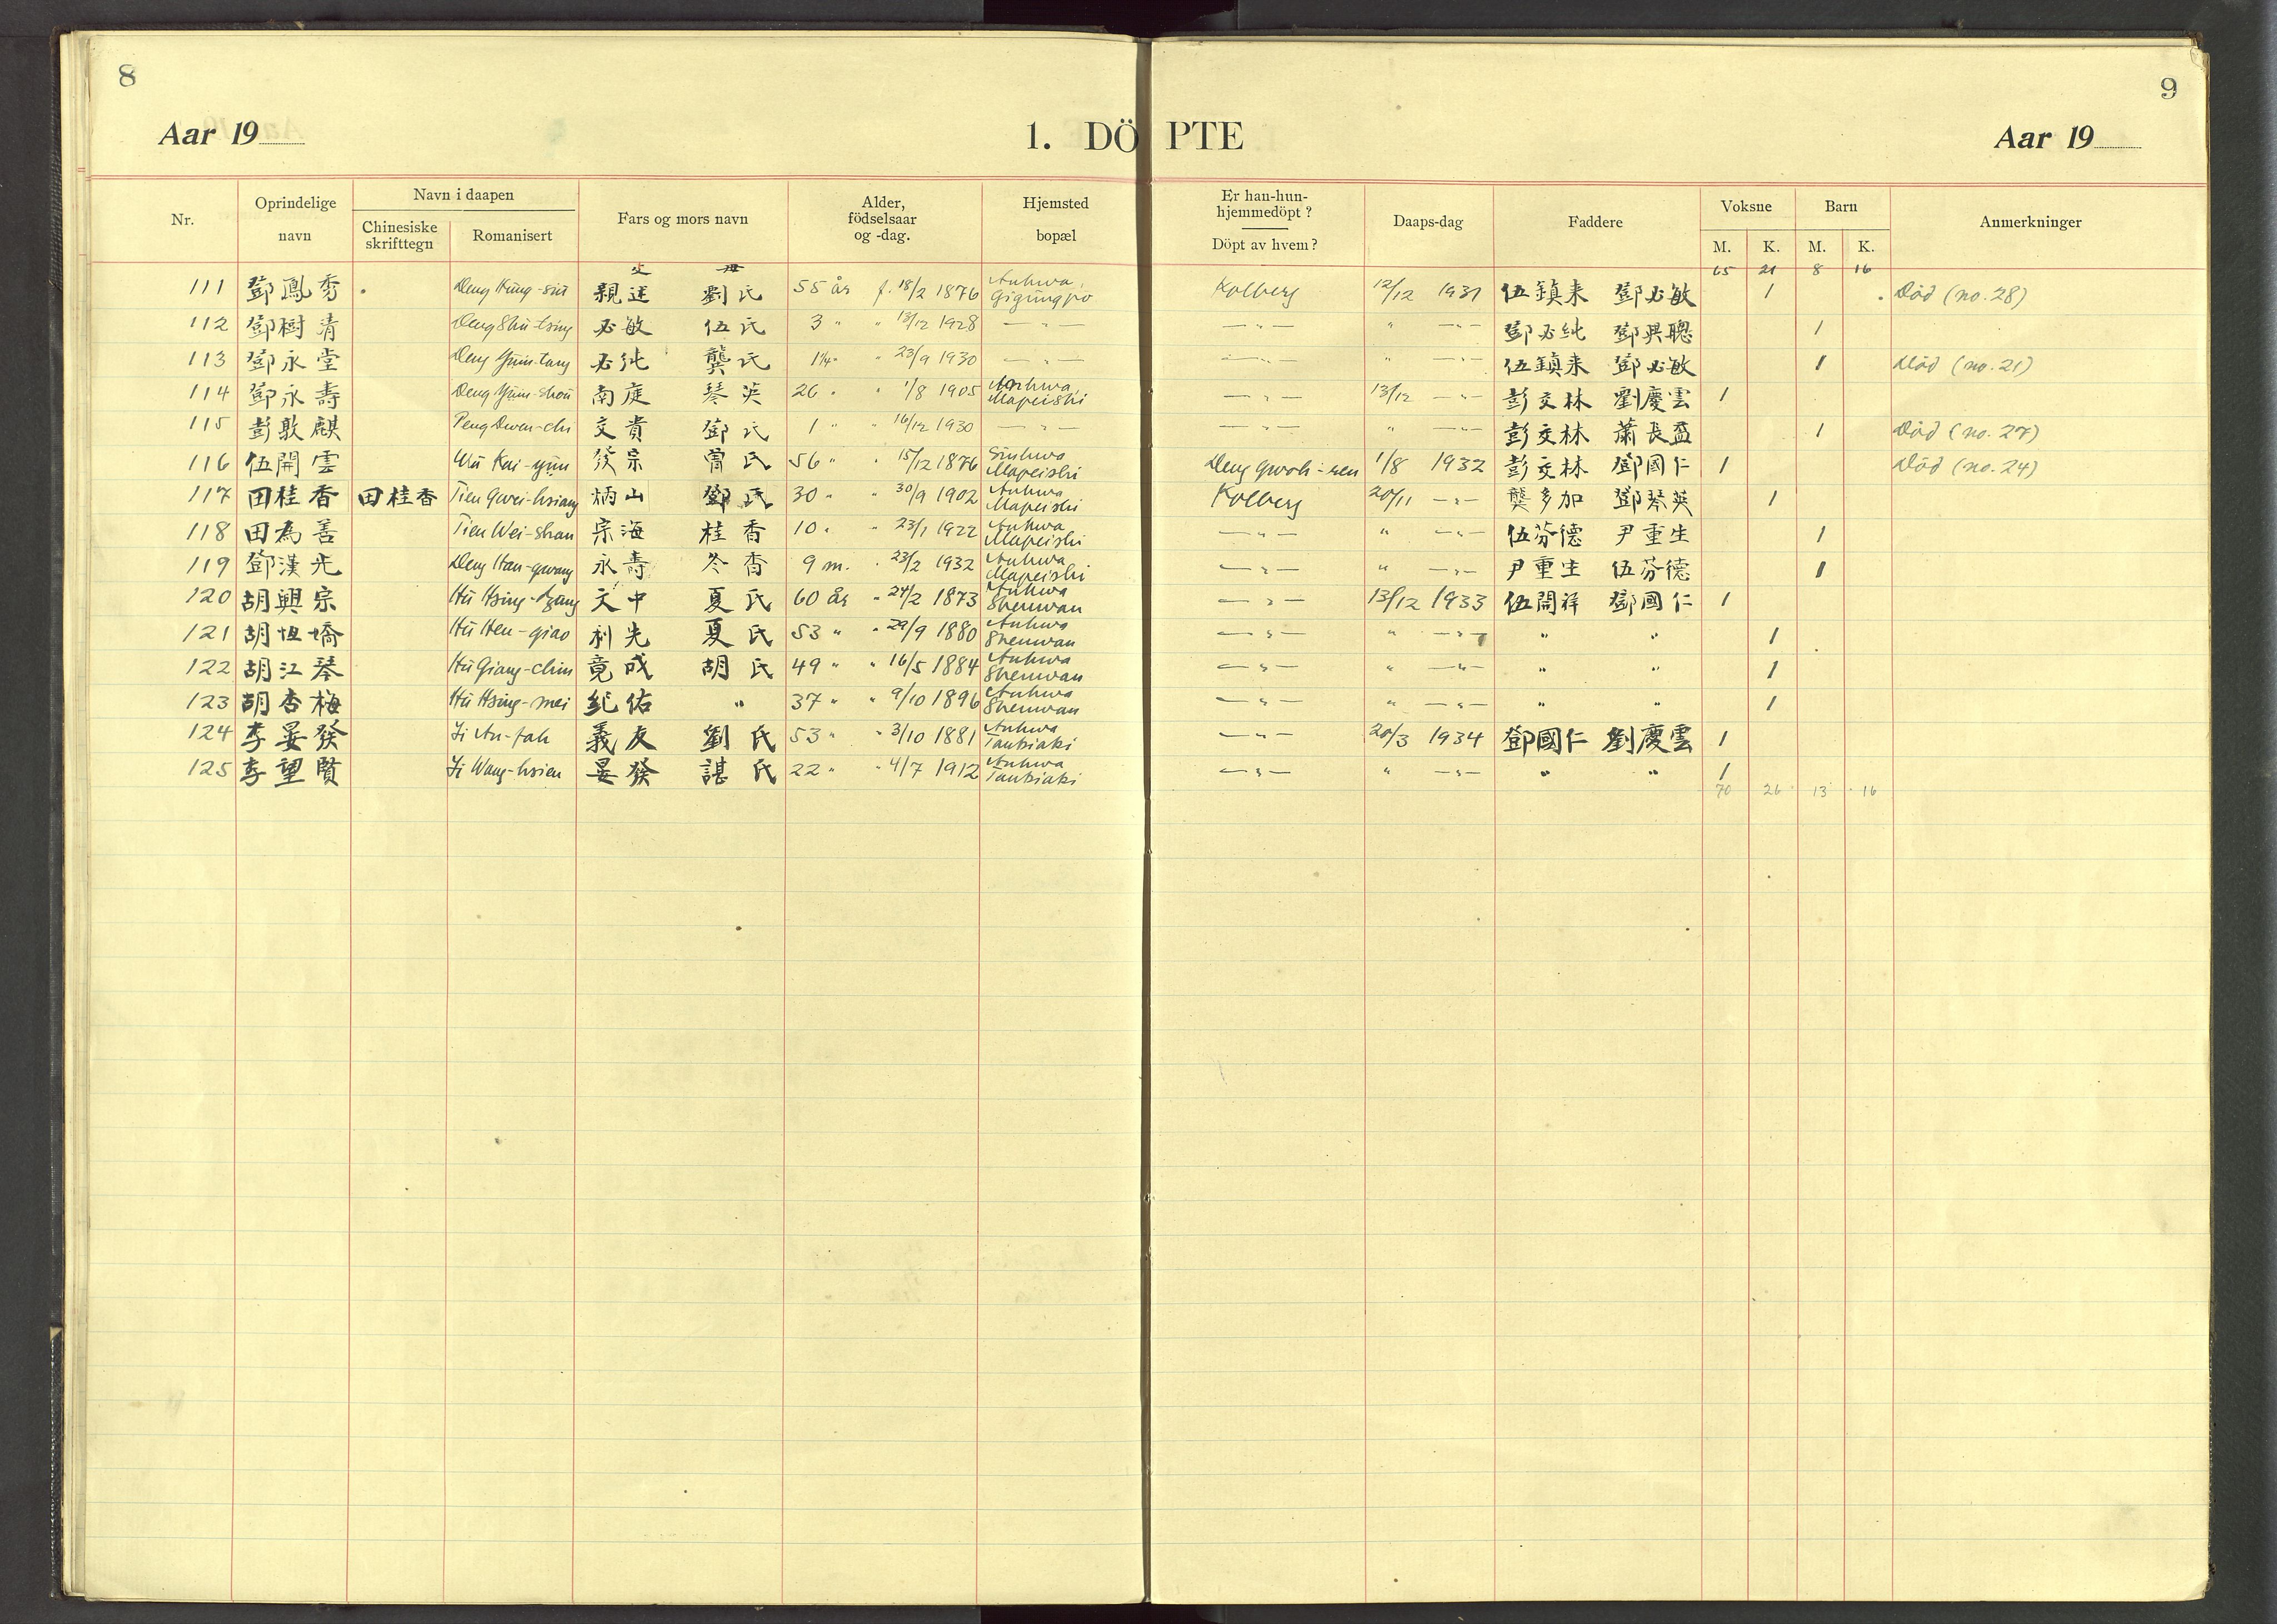 8
9
Aar 19
1. DÖPTE
Aar 19
Nr.
Oprindelige navn
Navn i daapen
Chinesiske skrifttegn
Romanisert
Fars og mors navn
Alder, födselsaar og -dag.
Hjemsted bopæl
Er han-hun-hjemmedöpt? Döpt av hvem?
Daaps-dag
Faddere
Voksne
M. K.
Barn
M. K.
Anmerkninger
父 母
65 21 8 16
111 鄧鳳秀 親廷 劉氏 55 år f. 18/2 1876 Anhwa, Gigüngpo Kolberg 12/12 1931 伍鎮来 鄧必敏 1 Död (no. 28)
112 鄧樹清 Deng Shü-tsing 必敏 伍氏 3 " " 13/12 1928 — " — — " — " — " — 鄧必純 鄧興聰 1
113 鄧永堂 Deng Yüin-tang 必純 龔氏 1¼ " " 23/9 1930 — " — — " — " — " — 伍鎮来 鄧必敏 1 Död (no. 21)
114 鄧永壽 Deng Yüin-shou 南庭 琴英 26 " " 1/8 1905 Anhwa, Mapeishi — " — 13/12 — " — 彭交林 劉慶雲 1
115 彭敦麒 Peng Dwen-chi 交貴 鄧氏 1 " " 16/12 1930 — " — — " — " — " — 彭交林 蕭長盈 1 Död (no. 27)
116 伍開雲 Wü Kai-yün 發宗 曾氏 56 " " 15/12 1876 Sinhwa Mapeishi Deng Gwoh-ren 1/8 1932 彭交林 鄧國仁 1 Död (no. 24)
117 田桂香 田桂香 Tien Gwei-hsiang 炳山 鄧氏 30 " " 30/9 1902 Anhwa Mapeishi Kolberg 20/11 — " — 龔多加 鄧琴英 1
118 田為善 Tien Wei-shan 宗海 桂香 10 " " 23/1 1922 Anhwa Mapeishi — " — " — " — 伍芬德 尹重生 1
119 鄧漢光 Deng Han-gwang 永壽 冬香 9 m. " 23/2 1932 Anhwa Mapeishi — " — " — " — 尹重生 伍芬德 1
120 胡興宗 Hü Hsing-dzung 文中 夏氏 60 år " 24/2 1873 Anhwa Shenwan — " — 13/12 1933 伍開祥 鄧國仁 1
121 胡恒嬌 Hü Hen-giao 利先 夏氏 53 " " 29/9 1880 Anhwa Shenwan — " — " — " — " " 1
122 胡江琴 Hü Giang-chin 竟成 胡氏 49 " " 16/5 1884 Anhwa Shenwan — " — " — " — " " 1
123 胡杏梅 Hü Hsing-mei 紀佑 " 37 " " 9/10 1896 Anhwa Shenwan — " — " — " — " " 1
124 李晏發 Li An-fah 義友 劉氏 53 " " 3/10 1881 Anhwa — " — 20/3 1934 鄧國仁 劉慶雲 1
125 李望賢 Li Wang-hsien 晏發 諶氏 22 " " 4/7 1912 Anhwa — " — " — " — " " 1
70 26 13 16